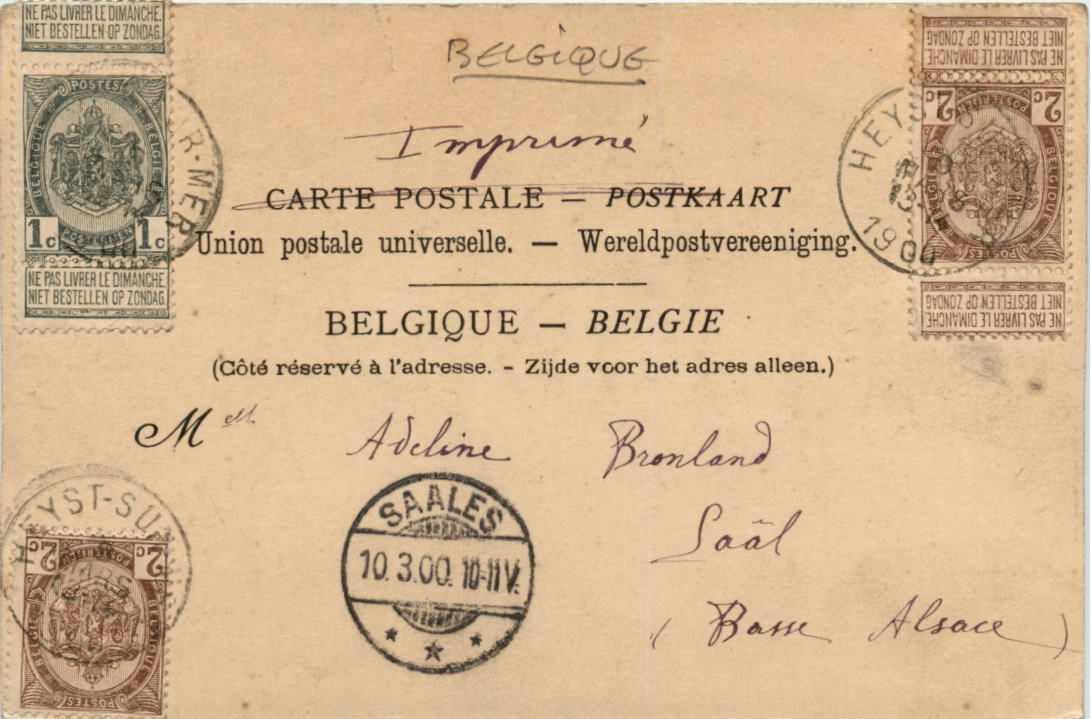 NE PAS LIVRER LE DIMANCHE.
NIET BESTELLEN OP ZONDAG.
POSTES
BELGIQUE
BELGIË
1c 1c
POSTERIJEN
NE PAS LIVRER LE DIMANCHE
NIET BESTELLEN OP ZONDAG
R-MER
BELGIQUE
NE PAS LIVRER LE DIMANCHE
NIET BESTELLEN OP ZONDAG
2c 2c
POSTERIJEN
BELGIË
BELGIQUE
POSTES
NE PAS LIVRER LE DIMANCHE
NIET BESTELLEN OP ZONDAG
HEYST
1900
Imprimé
CARTE POSTALE — POSTKAART
Union postale universelle. — Wereldpostvereeniging.
BELGIQUE — BELGIE
(Côté réservé à l'adresse. - Zijde voor het adres alleen.)
M elle Adeline Bronland
Saâl
(Basse Alsace)
SAALES
10.3.00. 10-11V.
HEYST-SU
2c 2c
POSTERIJEN
BELGIË
BELGIQUE
POSTES